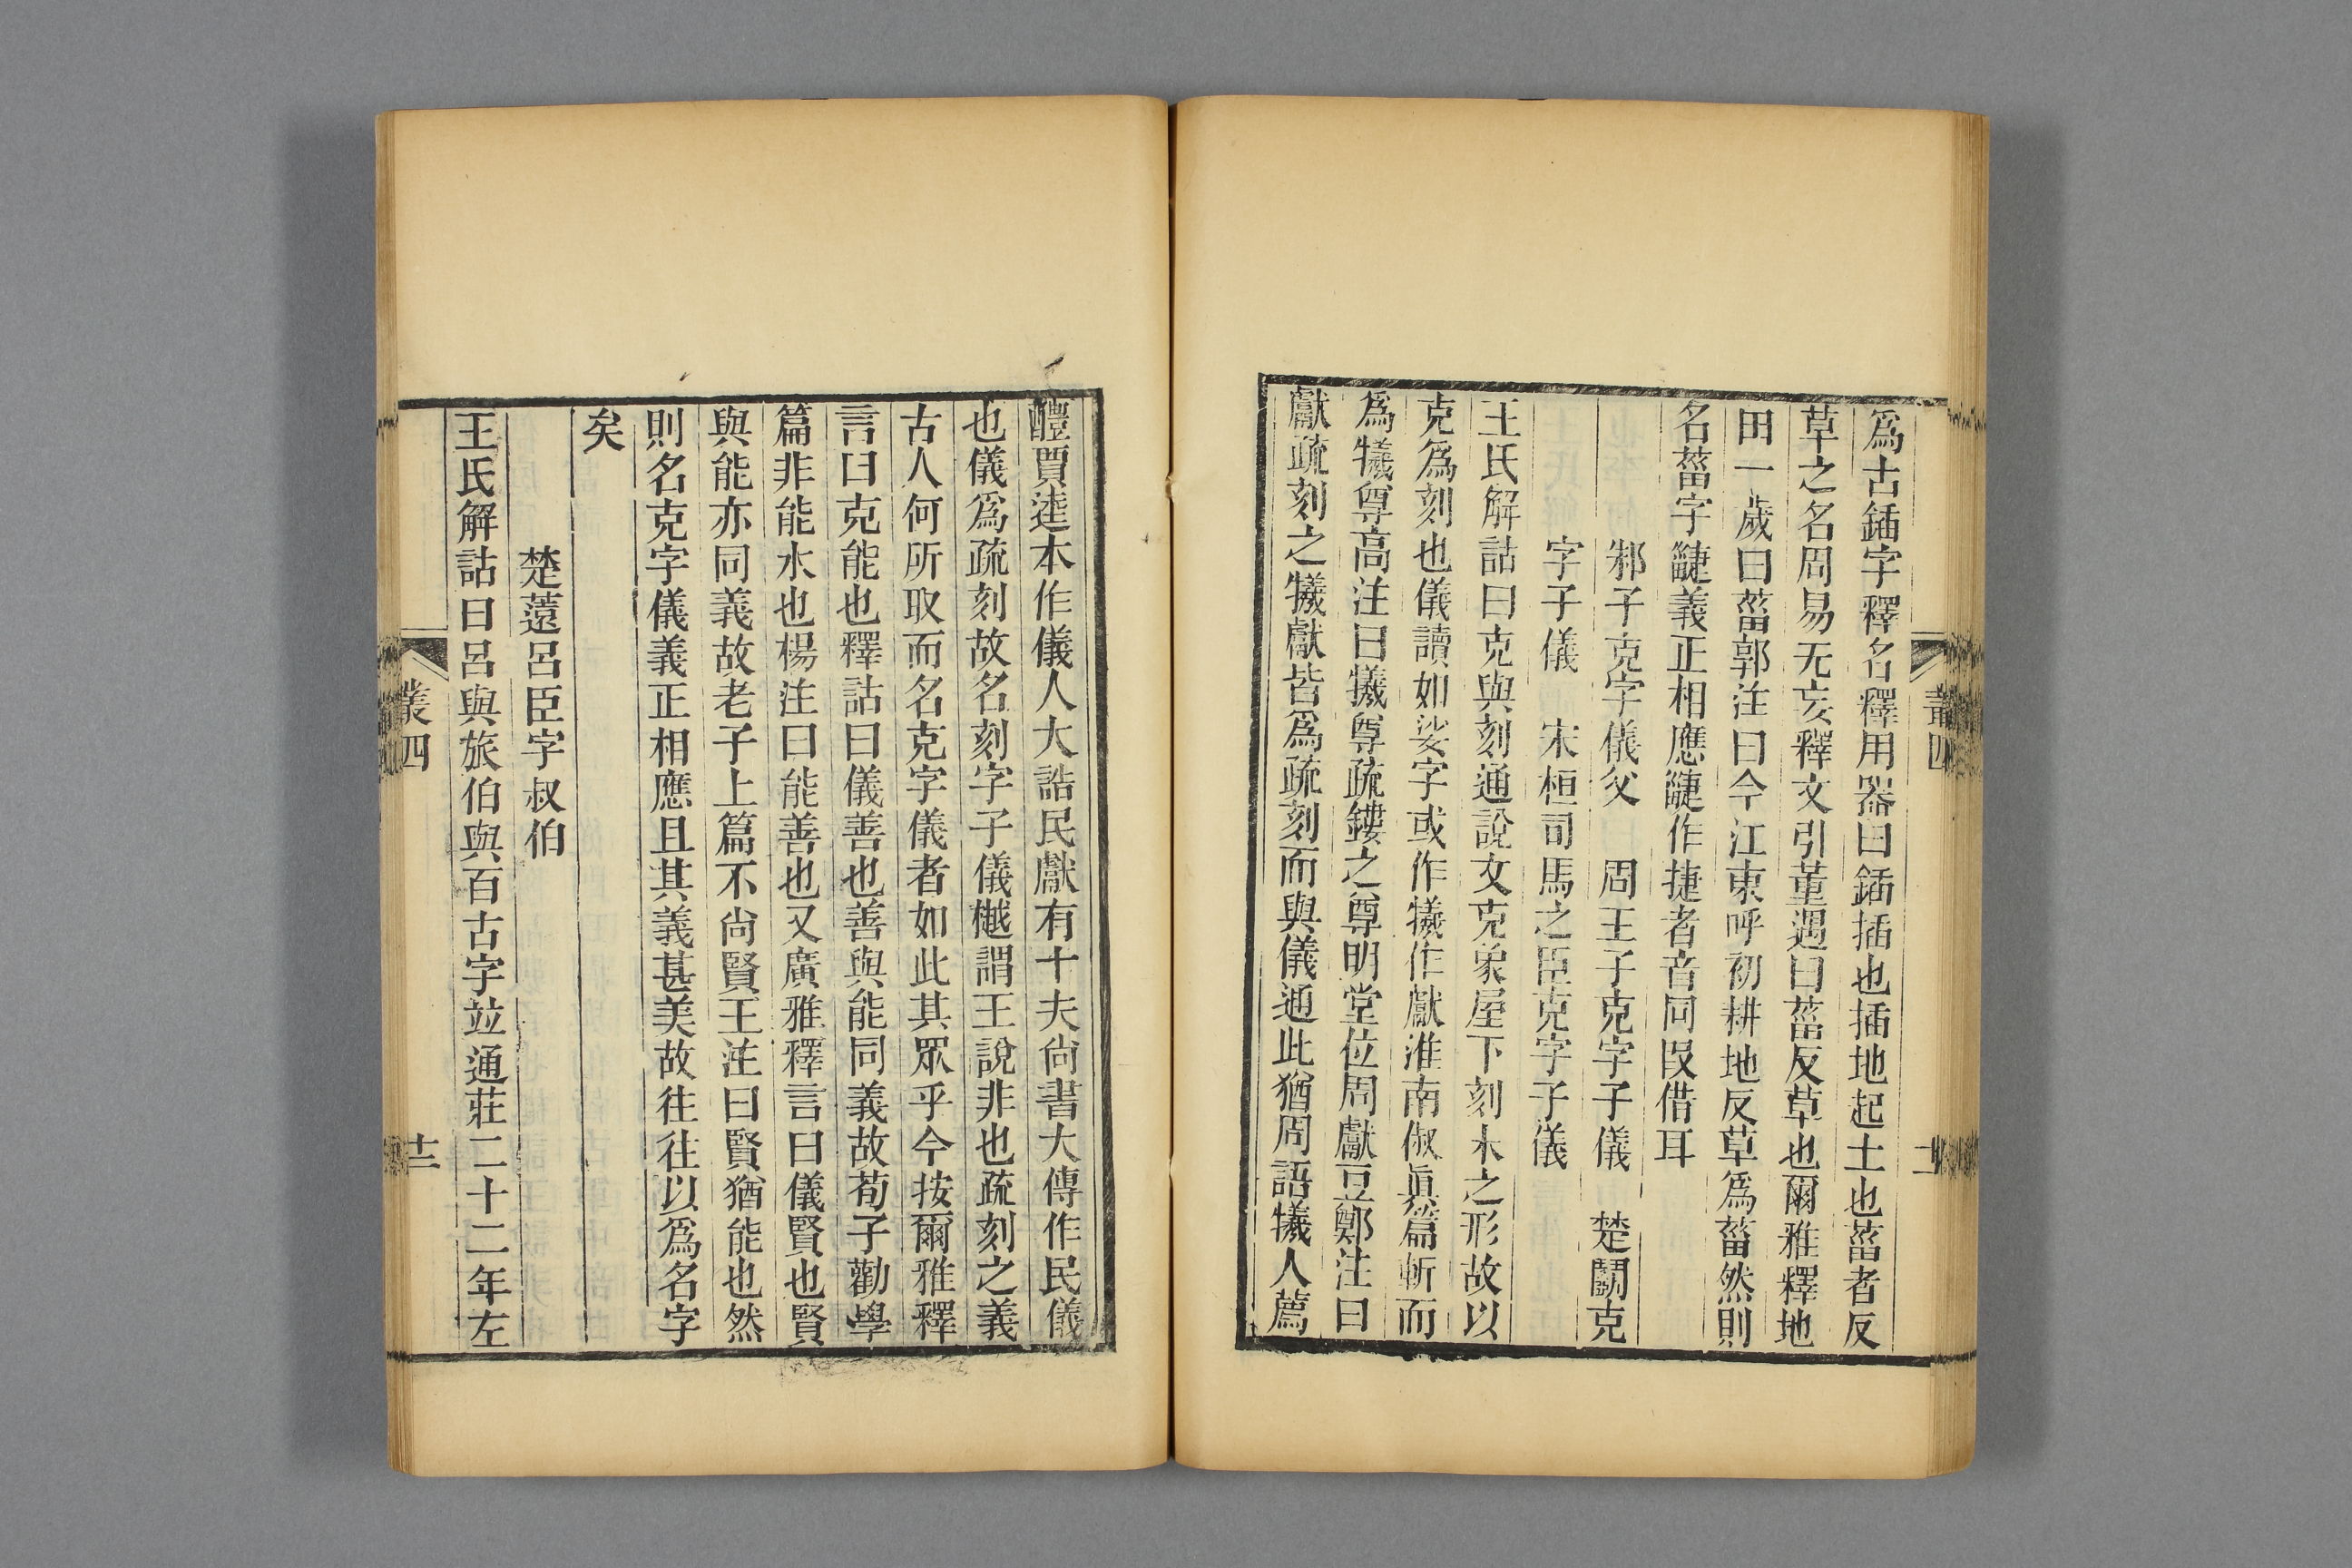 爲古鍤字釋名釋用器曰鍤插也插地起土也菑者反
草之名周易无妄釋文引董遇曰菑反草也爾雅釋地
田一歲曰菑郭注曰今江東呼初耕地反草爲菑然則
名菑字疌義正相應疌作捷者音同叚借耳
邾子克字儀父　周王子克字子儀　楚鬭克
字子儀　宋桓司馬之臣克字子儀
王氏解詁曰克與刻通說文克象屋下刻木之形故以
克爲刻也儀讀如娑字或作犧作獻淮南俶眞篇斬而
爲犧尊高注曰犧尊疏鏤之尊明堂位周獻豆鄭注曰
獻疏刻之犧獻皆爲疏刻而與儀通此猶周語犧人薦
叢四
十一
醴賈逵本作儀人大誥民獻有十夫尙書大傳作民儀
也儀爲疏刻故名刻字子儀樾謂王說非也疏刻之義
古人何所取而名克字儀者如此其眾乎今按爾雅釋
言曰克能也釋詁曰儀善也善與能同義故荀子勸學
篇非能水也楊注曰能善也又廣雅釋言曰儀賢也賢
與能亦同義故老子上篇不尙賢王注曰賢猶能也然
則名克字儀義正相應且其義甚美故往往以爲名字
矣
楚薳呂臣字叔伯
王氏解詁曰呂與旅伯與百古字竝通莊二十二年左
叢四
十二